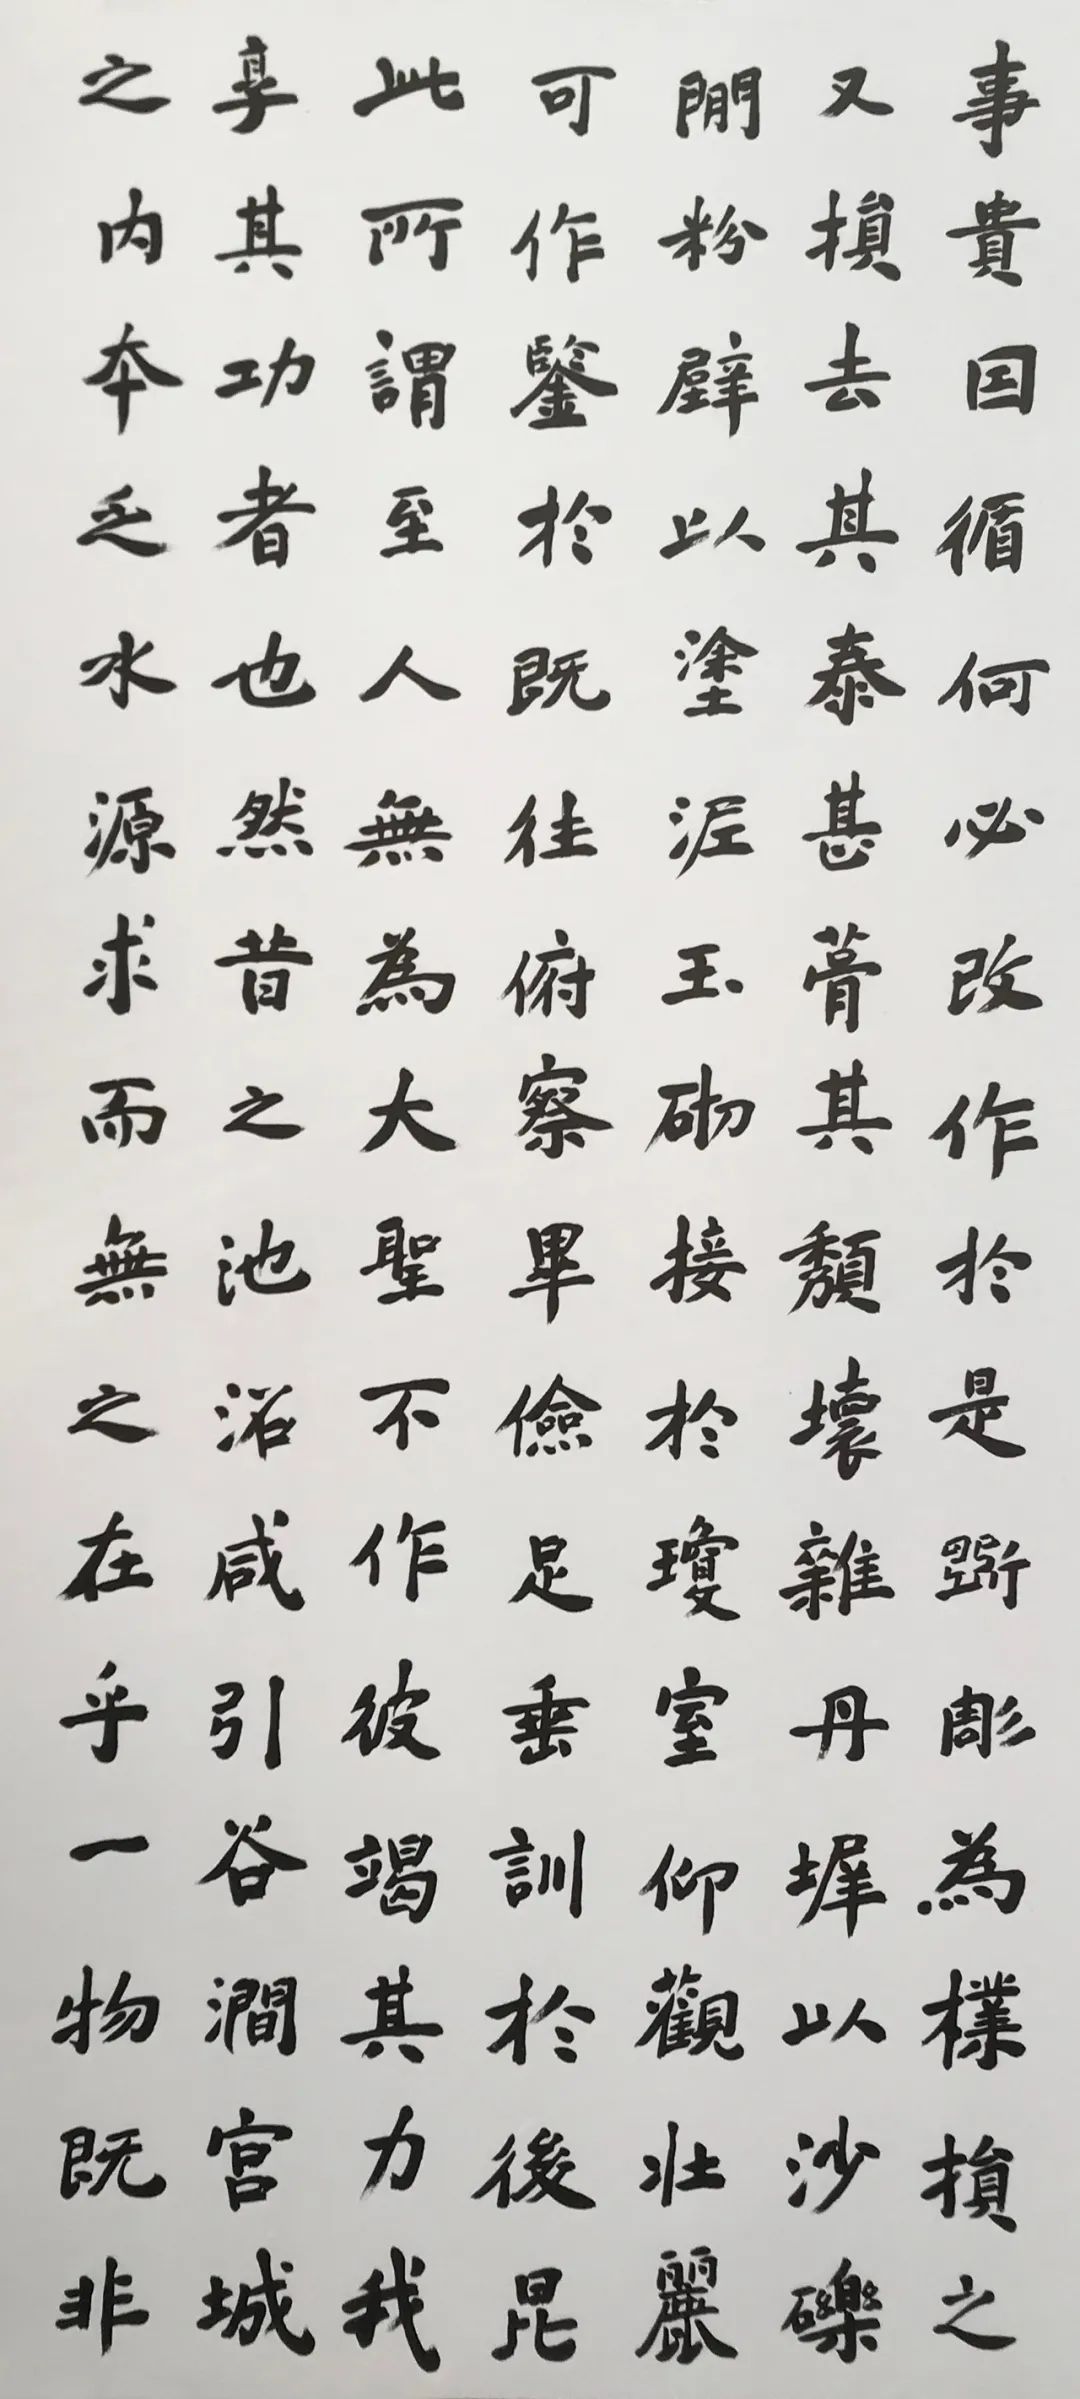 事貴因循何必改作於是斲彫為樸損之
又損去其泰甚葺其頹壞雜丹墀以沙礫
閒粉壁以塗泥玉砌接於瓊室仰觀壯麗
可作鑒於既往俯察卑儉足垂訓於後昆
此所謂至人無為大聖不作彼竭其力我
享其功者也然昔之池沼咸引谷澗宮城
之內本乏水源求而無之在乎一物既非